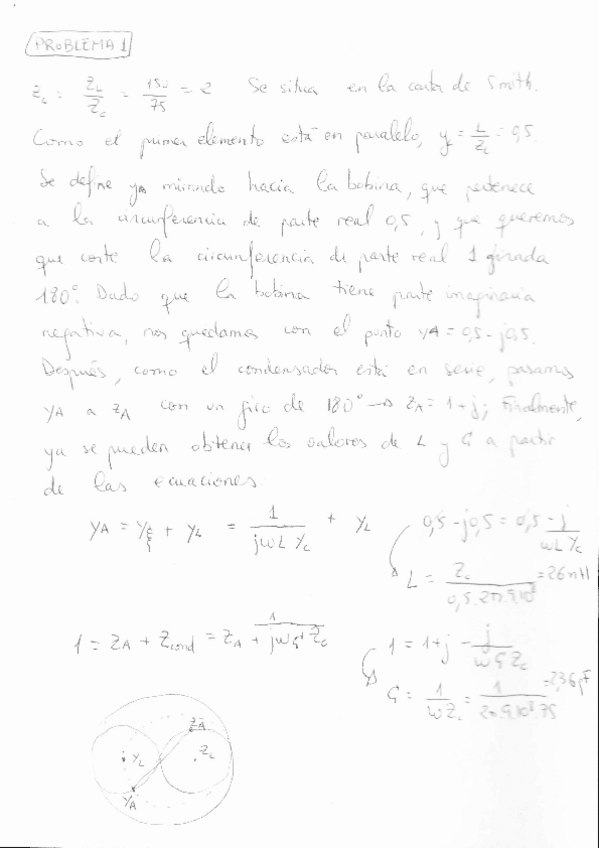 PROBLEMA 1
z_L = Z_L/Z_c = 150/75 = 2 Se situa en la carta de Smith.
Como el primer elemento está en paralelo, y_L = 1/z_L = 0,5.
Se define y_A mirando hacia la bobina, que pertenece
a la circunferencia de parte real 0,5, y que queremos
que corte la circunferencia de parte real 1 girada
180°. Dado que la bobina tiene parte imaginaria
negativa, nos quedamos con el punto y_A = 0,5 - j0,5.
Después, como el condensador está en serie, pasamos
y_A a z_A con un giro de 180° → z_A = 1 + j; Finalmente,
ya se pueden obtener los valores de L y C_1 a partir
de las ecuaciones
y_A = + y_L = 1/(jωL Y_c) + y_L
0,5 - j0,5 = 0,5 - j/(ωL Y_c)
L = Z_c/(0,5·2π·9·10^8) = 26 nH
1 = z_A + z_cond = z_A + 1/(jωC_1 Z_c)
1 = 1 + j - j/(ωC_1 Z_c)
C_1 = 1/(ωZ_c) = 1/(2π·9·10^8·75) = 2,36 pF
z_A
y_L
z_L
y_A